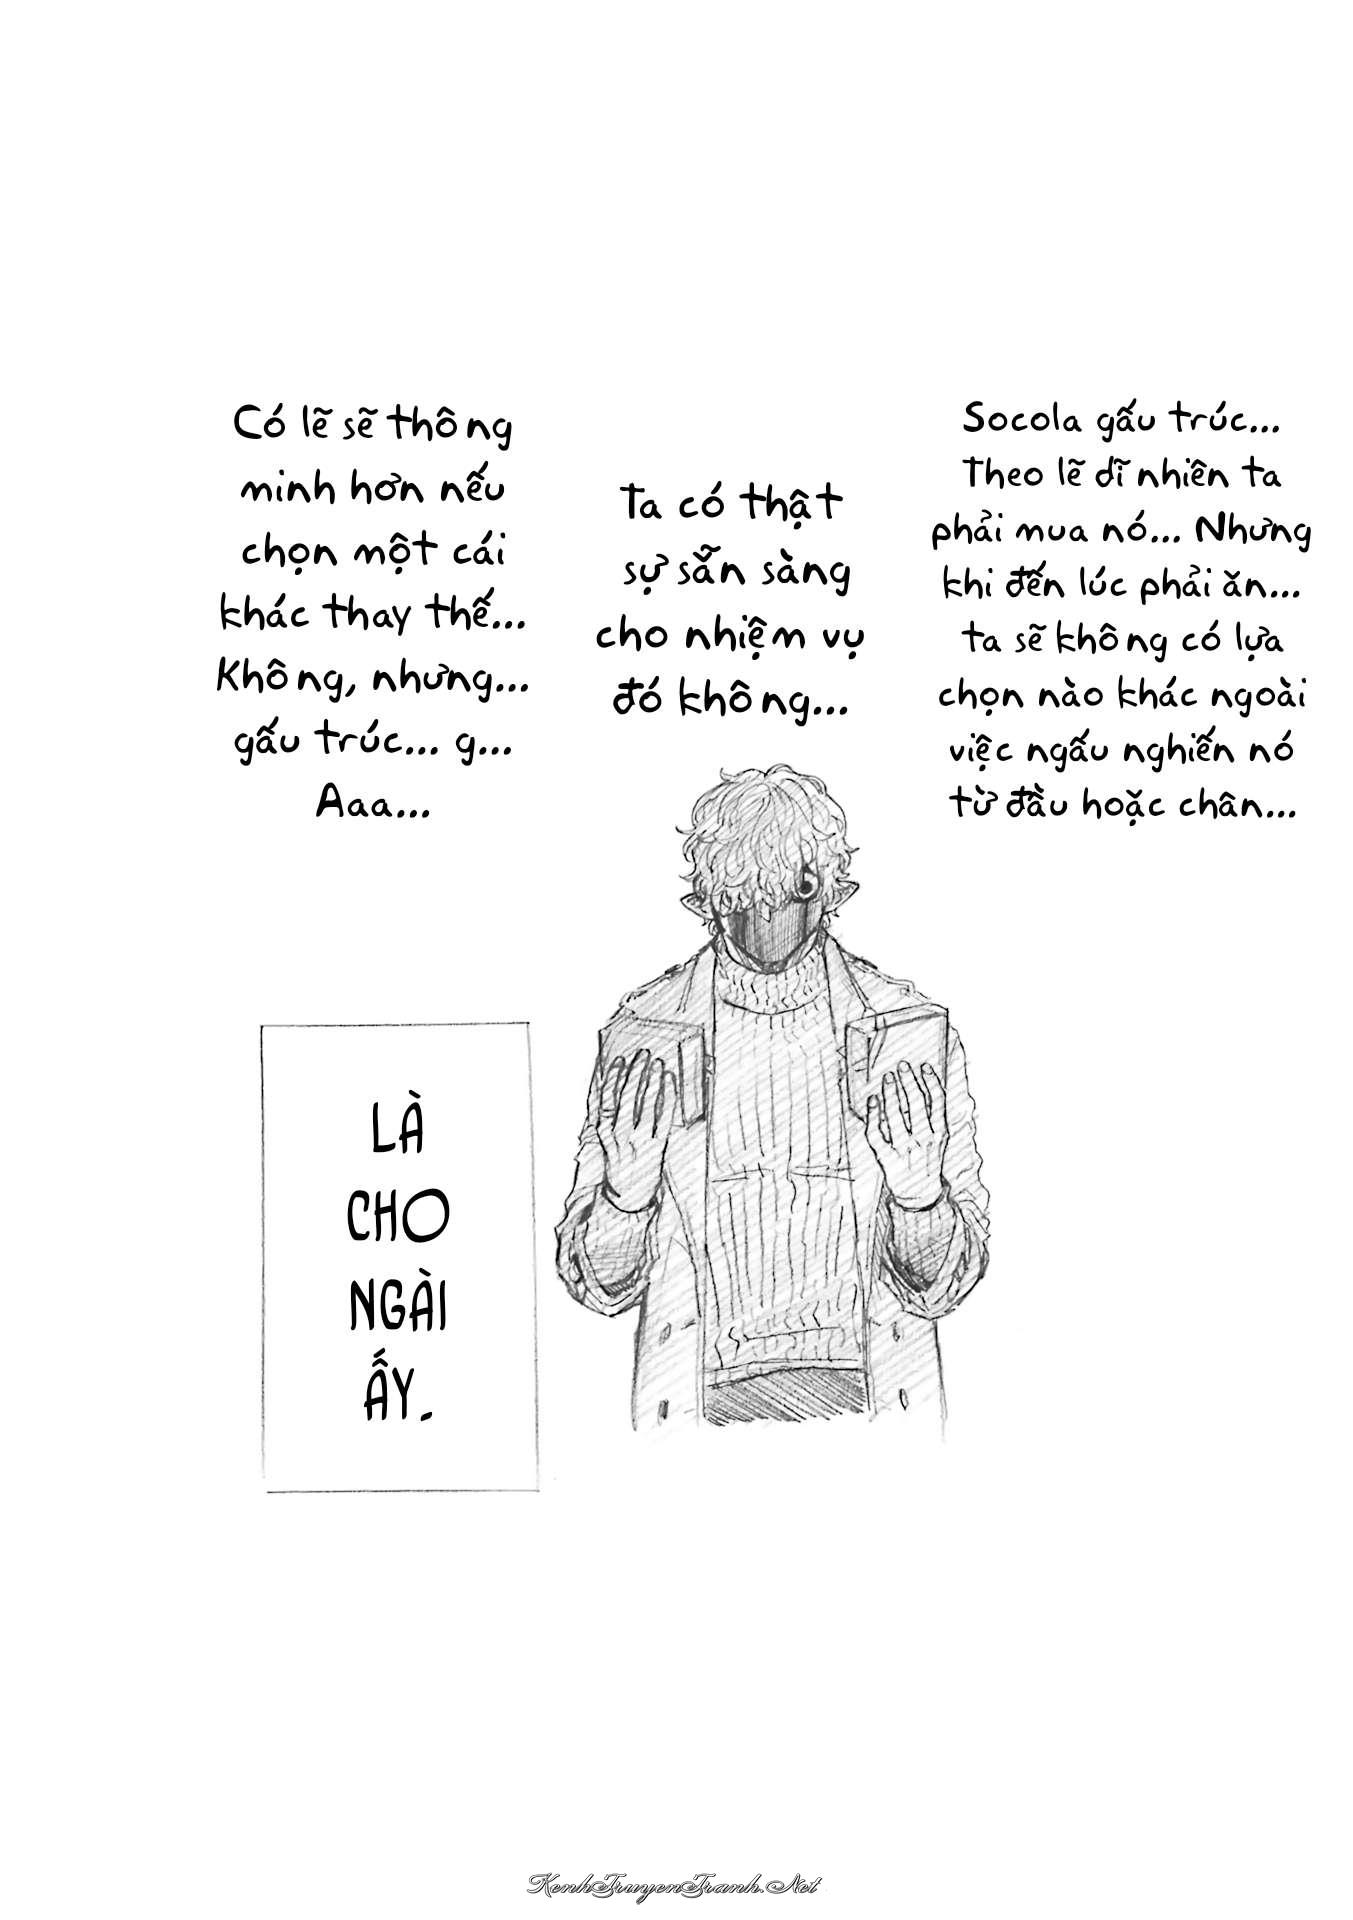 Socola gấu trúc...
Theo lẽ dĩ nhiên ta
phải mua nó... Nhưng
khi đến lúc phải ăn...
ta sẽ không có lựa
chọn nào khác ngoài
việc ngấu nghiến nó
từ đầu hoặc chân...
Ta có thật
sự sẵn sàng
cho nhiệm vụ
đó không...
Có lẽ sẽ thông
minh hơn nếu
chọn một cái
khác thay thế...
Không, nhưng...
gấu trúc... g...
Aaa...
LÀ
CHO
NGÀI
ẤY.
KenhTruyenTranh.Net